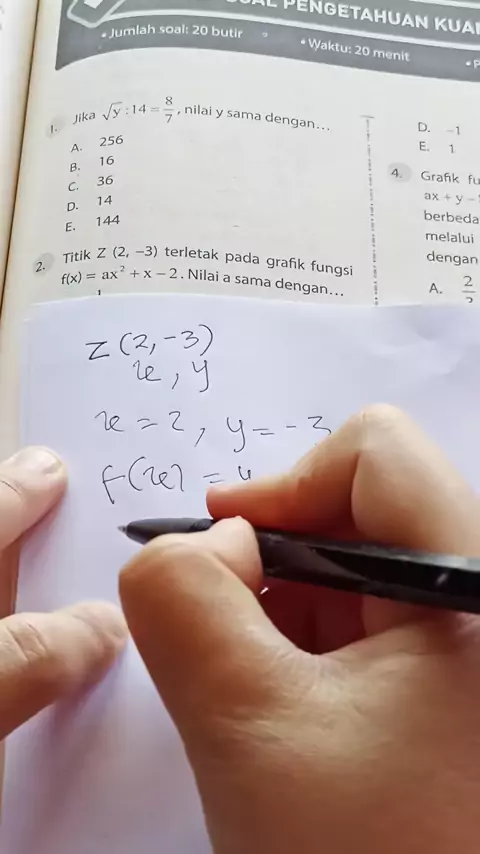 PENGETAHUAN
• Jumlah soal: 20 butir
• Waktu: 20 menit
1. Jika √y : 14 = 8/7, nilai y sama dengan...
A. 256
B. 16
C. 36
D. 14
E. 144
2. Titik Z (2, –3) terletak pada grafik fungsi
f(x) = ax² + x – 2. Nilai a sama dengan...
D. –1
E. 1
4. Grafik
ax + y –
berbeda
melalui
dengan
A. 2
Z (2, -3)
x, y
x = 2, y = - 3
f(x) =